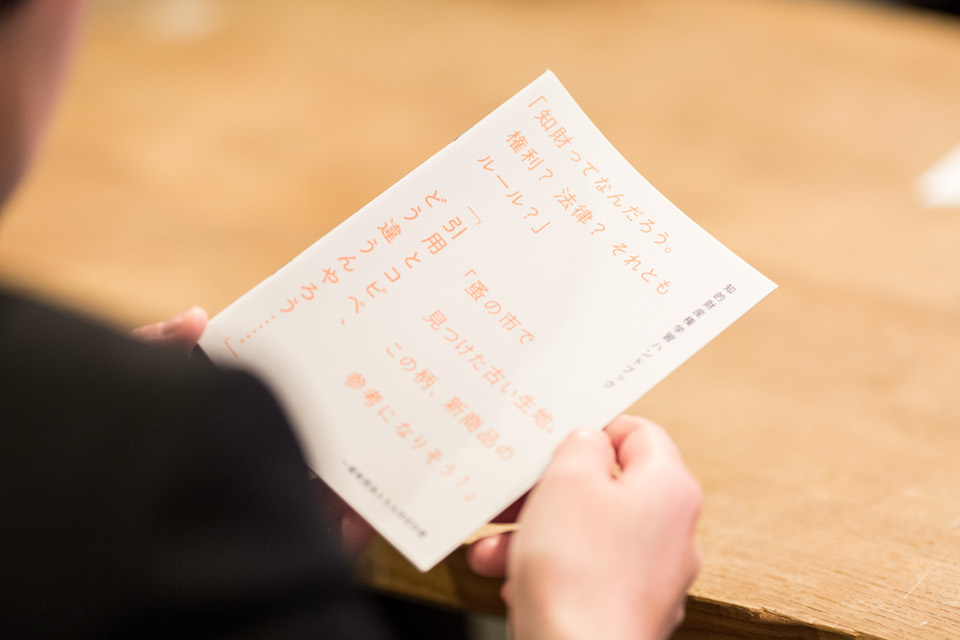 知的財産権 学習 ハンドブック
「知財ってなんだろう。
権利？ 法律？ それとも
ルール？」
「引用とコピペ、
どう違うんやろう……」
「蚤の市で
見つけた古い生地。
この柄、新商品の
参考になりそう！」